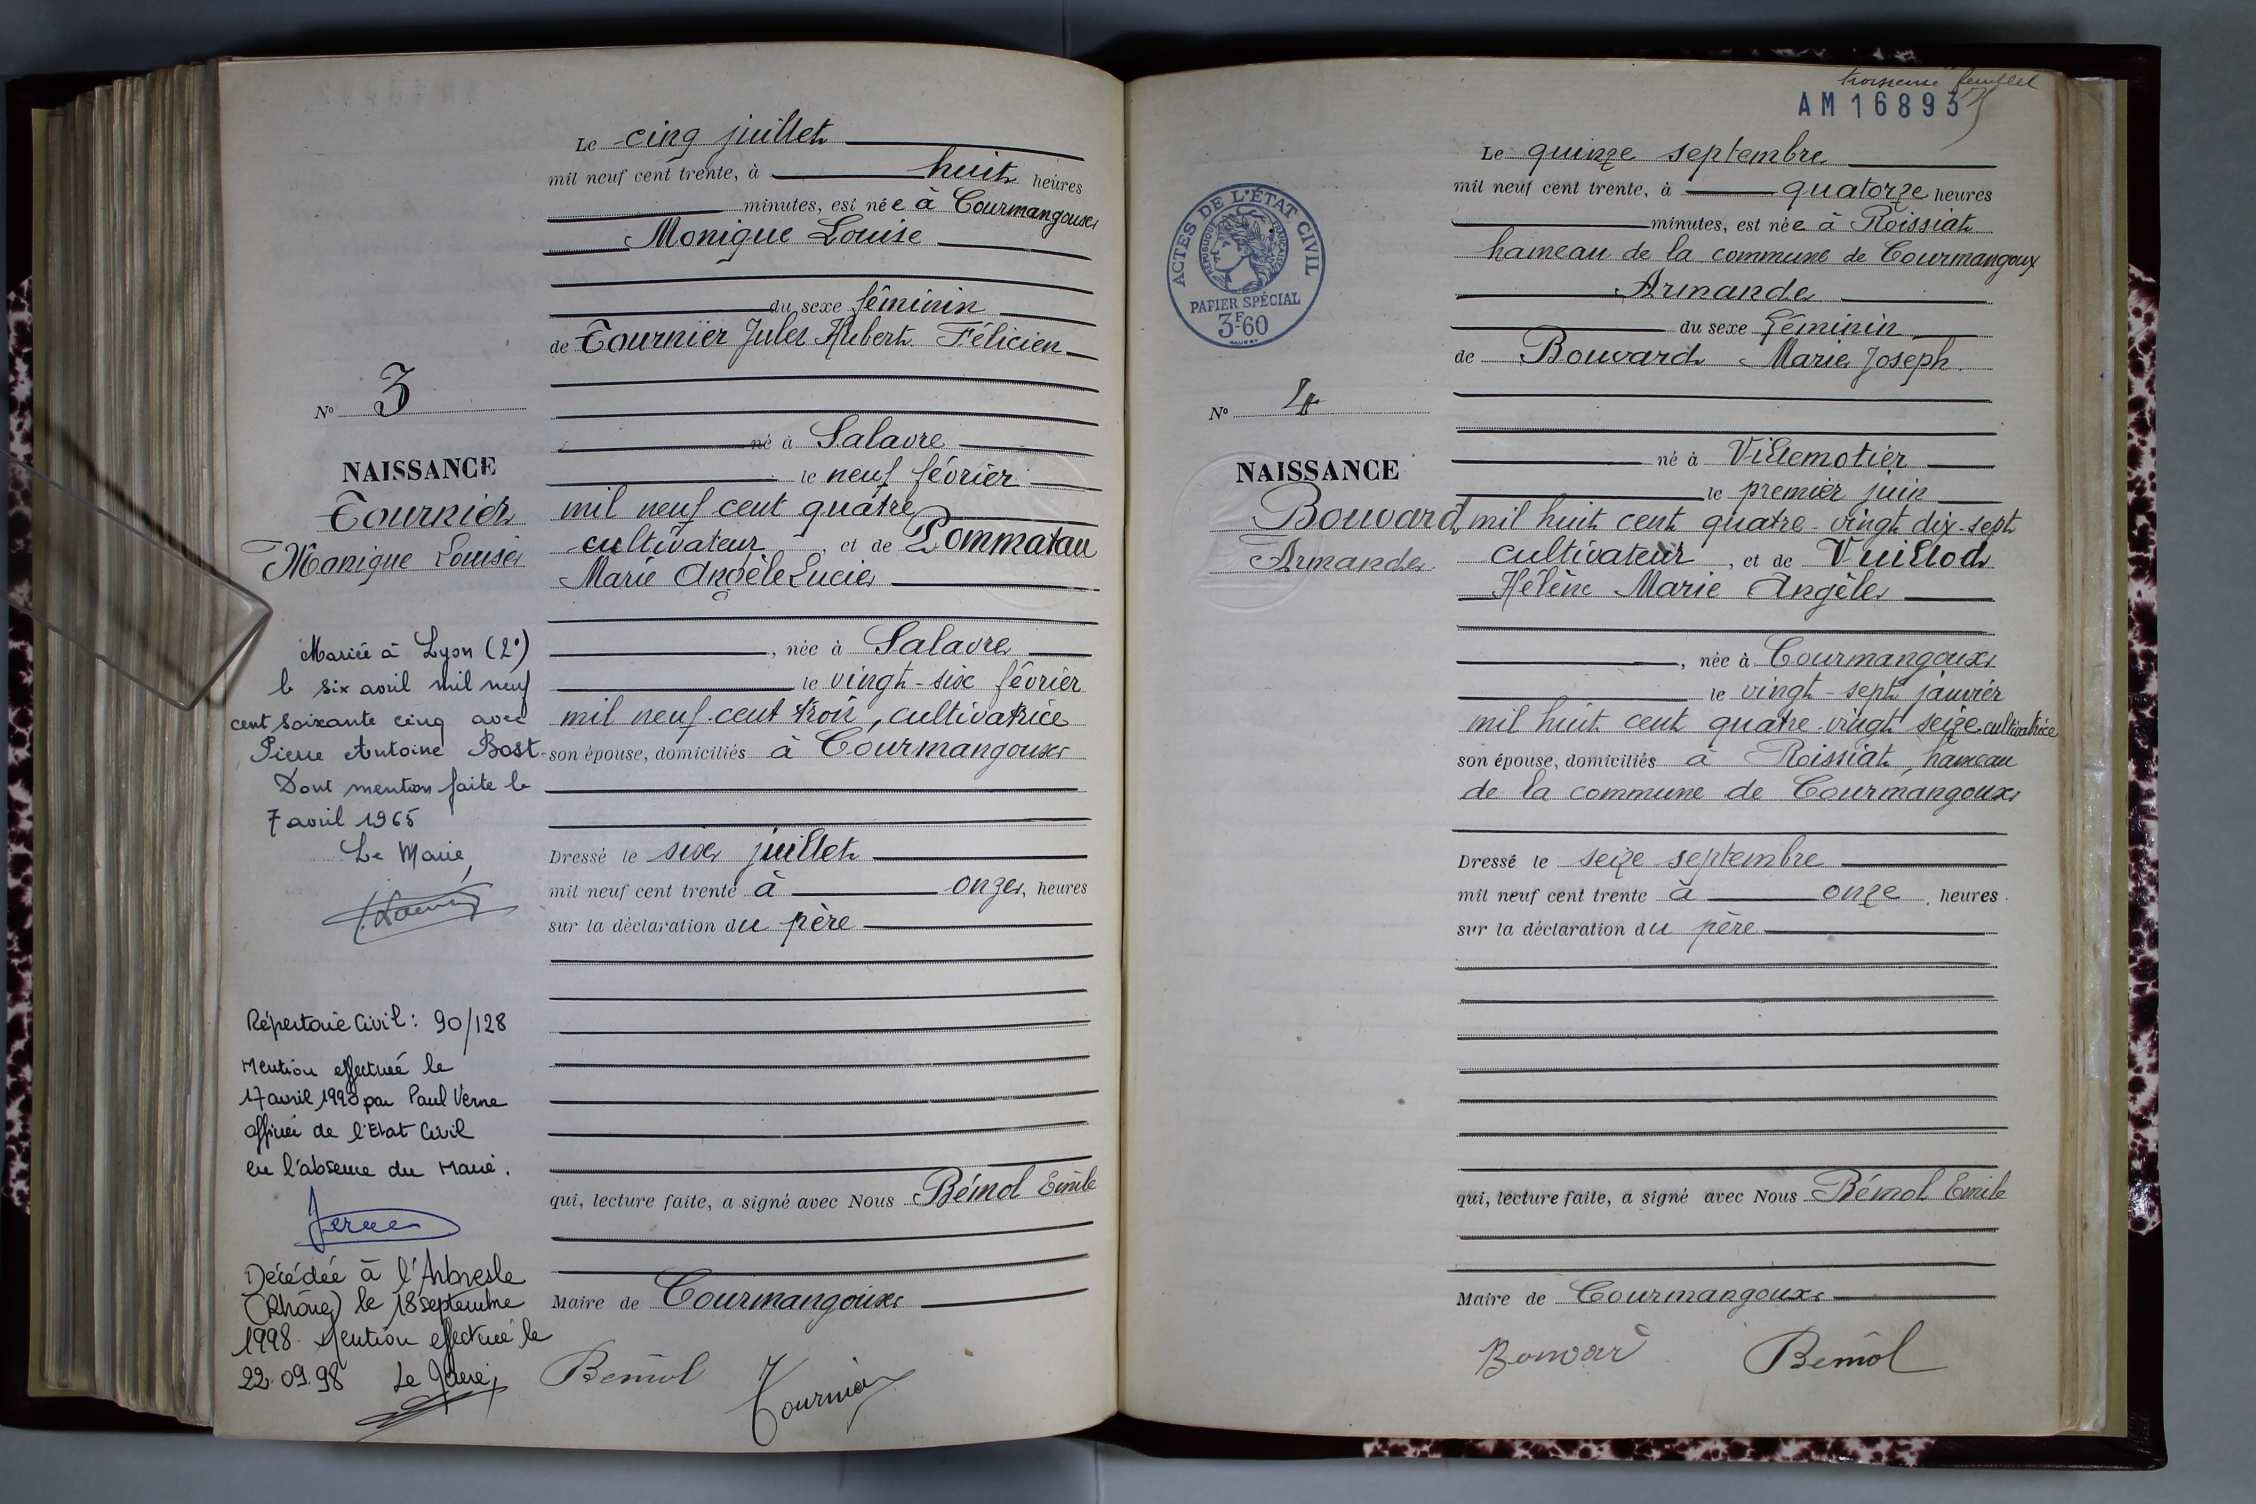 Le cinq juillet
mil neuf cent trente, à huit heures
minutes, est née à Courmangoux
Monique Louise
du sexe féminin
de Tournier Jules Hubert Félicien
né à Salavre
le neuf février
mil neuf cent quatre
cultivateur, et de Pommatau
Marie Angèle Lucie
, née à Salavre
le vingt-six février
mil neuf cent trois, cultivatrice
son épouse, domiciliés à Courmangoux
Dressé le six juillet
mil neuf cent trente à onze, heures
sur la déclaration du père
qui, lecture faite, a signé avec Nous Bémol Emile
Maire de Courmangoux
Bémol Tournier
No 3
NAISSANCE
Tournier
Monique Louise
Mariée à Lyon (2°)
le six avril mil neuf
cent soixante cinq avec
Pierre Antoine Bost.
Dont mention faite le
7 avril 1965
Le Maire,
Répertoire Civil : 90/128
Mention effectuée le
17 avril 1990 par Paul Verne
officier de l'Etat Civil
en l'absence du Maire.
Verne
Décédée à l'Arbresle
(Rhône) le 18 septembre
1998. Mention effectuée le
22.09.98 Le Maire,
troisième feuillet
AM 16893
ACTES DE L'ÉTAT CIVIL
RÉPUBLIQUE FRANÇAISE
PAPIER SPÉCIAL
3F60
Le quinze septembre
mil neuf cent trente, à quatorze heures
minutes, est née à Roissiat
hameau de la commune de Courmangoux
Armande
du sexe féminin
de Bouvard Marie Joseph
né à Villemotier
le premier juin
mil huit cent quatre-vingt dix-sept
cultivateur, et de Vuillod
Hélène Marie Angèle
, née à Courmangoux
le vingt-sept janvier
mil huit cent quatre vingt seize cultivatrice
son épouse, domiciliés à Roissiat, hameau
de la commune de Courmangoux
Dressé le seize septembre
mil neuf cent trente à onze, heures.
sur la déclaration du père
qui, lecture faite, a signé avec Nous Bémol Emile
Maire de Courmangoux
Bouvard Bémol
No 4
NAISSANCE
Bouvard
Armande